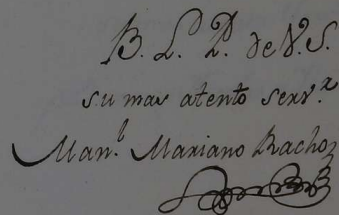 B. L. P. de V. S.
su mas atento serv.r
Man.l Mariano Racho